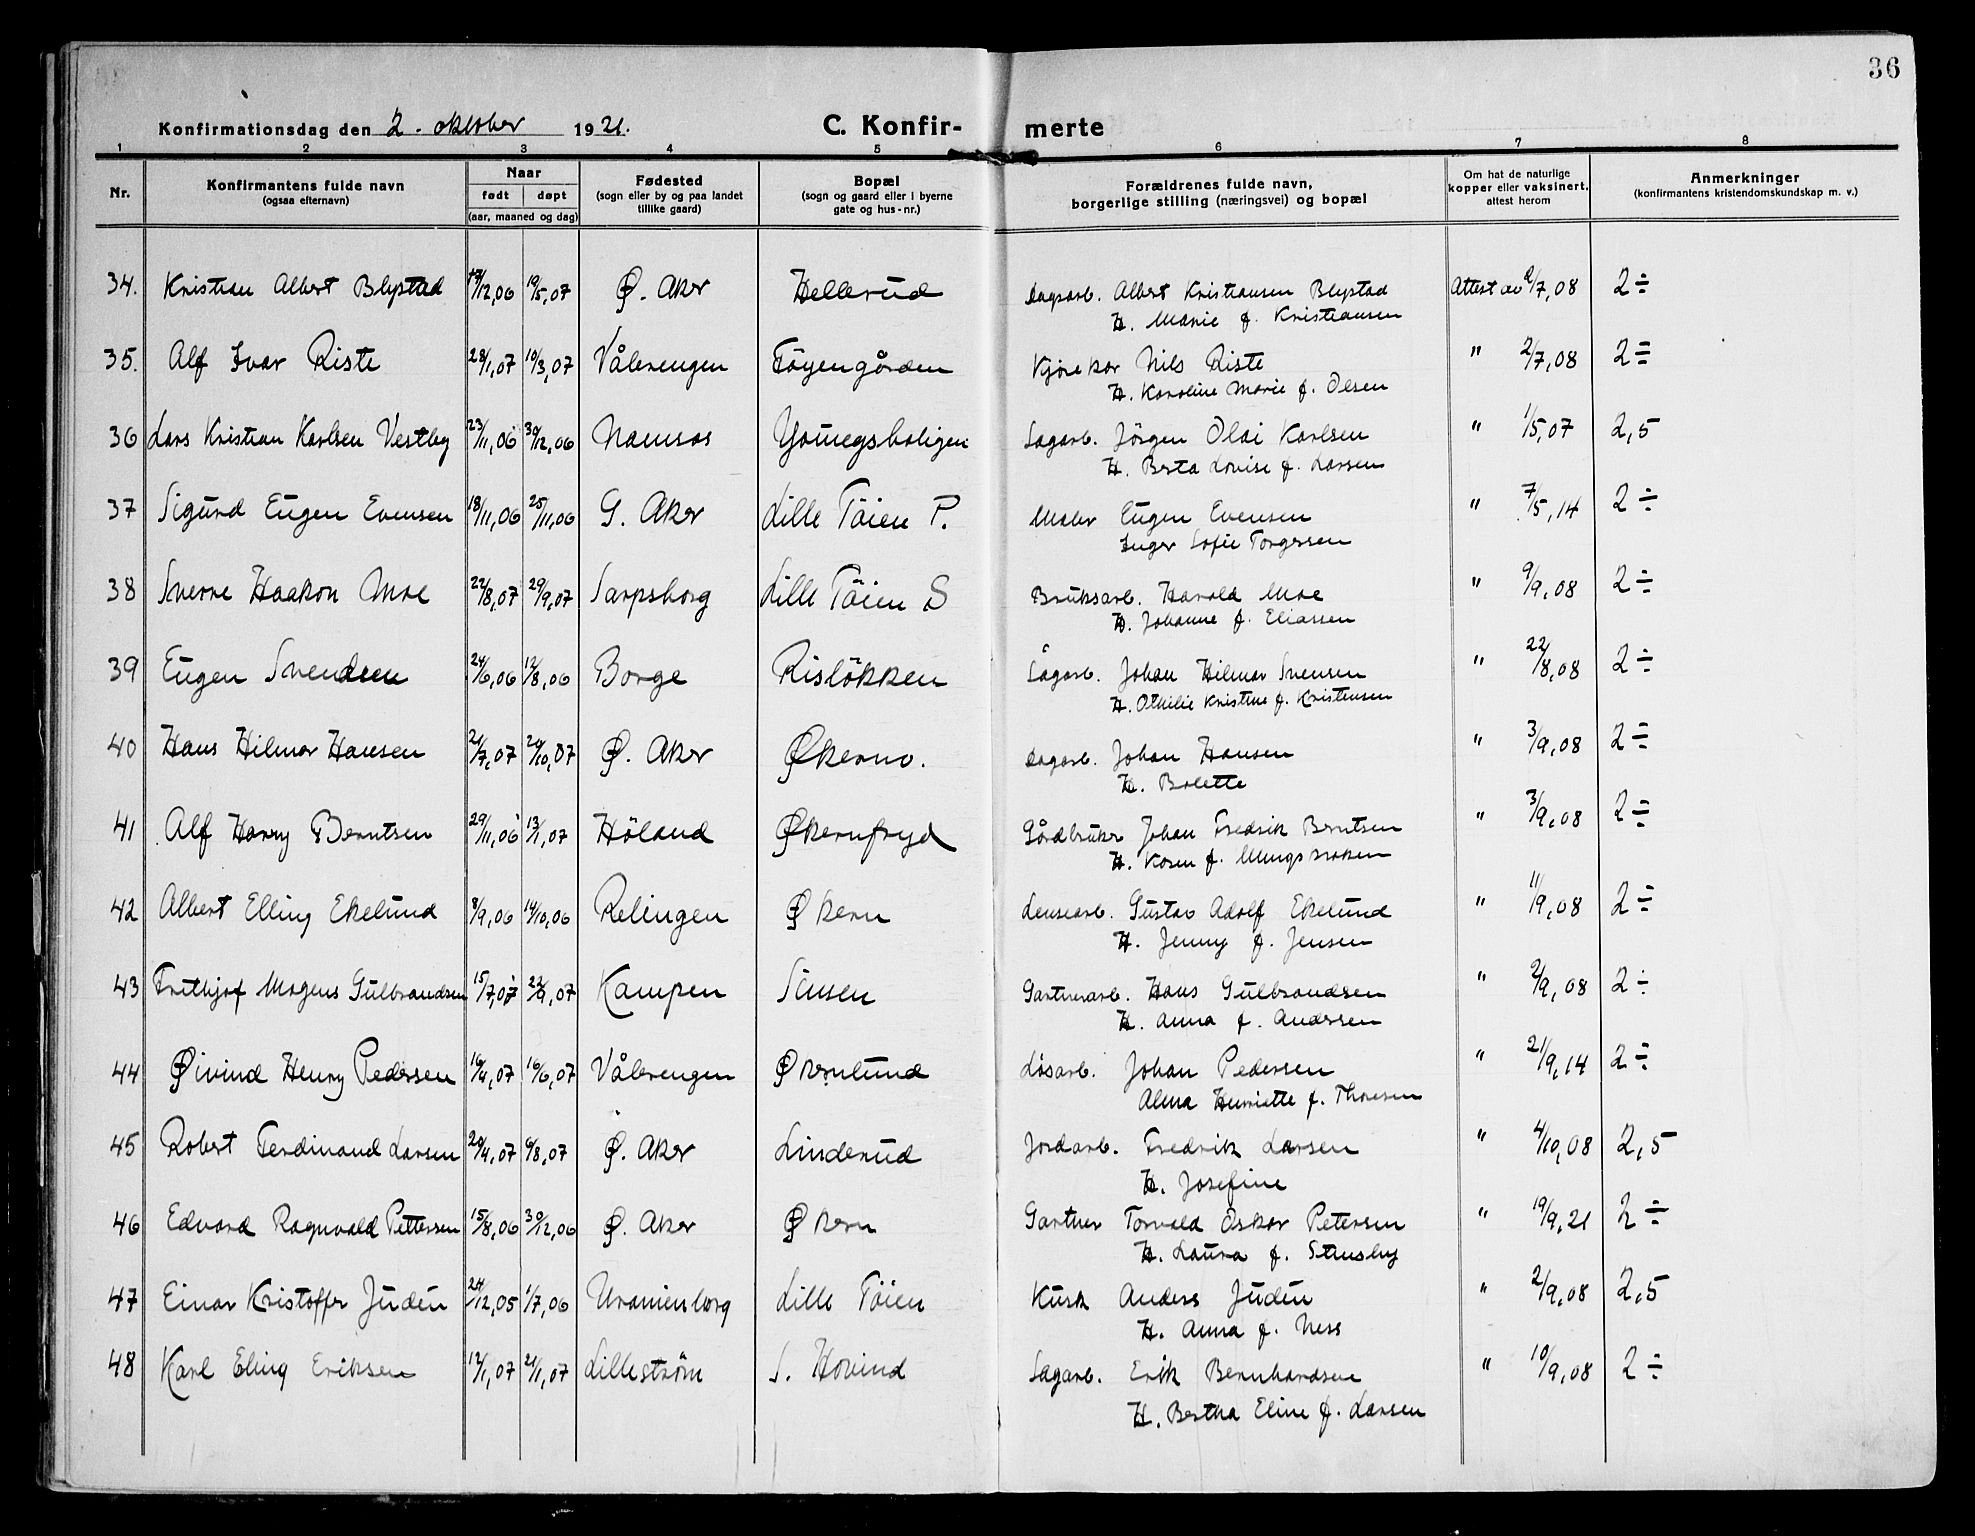 36
Konfirmationsdag den 2. oktober 1921. C. Konfir- merte
1 2 3 4 5 6 7 8
Nr. Konfirmantens fulde navn (ogsaa efternavn) Naar født døpt (aar, maaned og dag) Fødested (sogn eller by og paa landet tillike gaard) Bopæl (sogn og gaard eller i byerne gate og hus-nr.) Forældrenes fulde navn, borgerlige stilling (næringsvei) og bopæl Om hat de naturlige kopper eller vaksinert, attest herom Anmerkninger (konfirmantens kristendomskundskap m. v.)
34. Kristian Albert Blystad 17/12,06 19/5,07 Ø. Aker Hellerud Dagsarb. Albert Kristiansen Blystad Attest av 2/7,08 2÷
H. Marie f. Kristiansen
35. Alf Ivar Riste 28/1,07 10/3,07 Vålerengen Töyengården Kjørekar Nils Riste " 2/7,08 2=
H. Karoline Marie f. Olsen
36 Lars Kristian Karlsen Vestby 23/11,06 30/12,06 Namsos Sagarb. Jörgen Olai Karlsen " 1/5,07 2,5
H. Berta Lovise f. Larsen
37 Sigurd Eugen Evensen 18/11,06 25/11,06 G. Aker Lille Töien P. Maler Eugen Evensen " 7/5,14 2÷
Inger Sofie Torgersen
38 Sverre Haakon Moe 22/8,07 29/9,07 Sarpsborg Lille Töien S Bruksarb. Harald Moe " 9/9,08 2÷
H. Johanne f. Eliassen
39 Eugen Svendsen 24/6,06 12/8,06 Borge Risløkken Sagarb. Johan Hilmar Svensen " 22/8,08 2÷
H. Othilie Kristine f. Kristensen
40 Hans Hilmar Hansen 21/7,07 20/10,07 Ø. Aker Økernv. Dagarb. Johan Hansen " 3/9,08 2÷
H. Bolette
41 Alf Harry Berntsen 29/11,06 13/1,07 Höland Økernfryd Gårdbruker Johan Fredrik Berntsen " 3/9,08 2÷
H. Karen f.
42 Albert Elling Ekelund 8/9,06 14/10,06 Relingen Økern Lensearb. Gustav Adolf Ekelund " 11/9,08 2÷
H. Jenny f. Jensen
43 Frithjof Mogens Gulbrandsen 15/7,07 22/9,07 Kampen Sinsen Gartnerarb. Hans Gulbrandsen " 2/9,08 2÷
H. Anna f. Andersen
44 Øivind Henry Pedersen 16/4,07 16/6,07 Vålerengen Økernlund Løsarb. Johan Pedersen " 21/9,14 2÷
Alma Henriette f. Thoresen
45 Robert Ferdinand Larsen 20/4,07 6/8,07 Ø. Aker Linderud Jordarb. Fredrik Larsen " 4/10,08 2,5
H. Josefine
46 Edvard Ragnvald Pettersen 15/8,06 30/12,06 Ø. Aker Økern Gartner Torvald Oskar Petersen " 19/9,21 2÷
H. Laura f. Stensby
47 Einar Kristoffer Juden 24/12,05 1/7,06 Uranienborg Lille Töien Kusk Anders Juden " 2/9,08 2,5
H. Anna f. Ness
48 Karl Eling Eriksen 12/1,07 21/1,07 Lilleström S. Hovind Sagarb. Erik Bernhardsen " 10/9,08 2÷
H. Bertha Eline f. Larsen